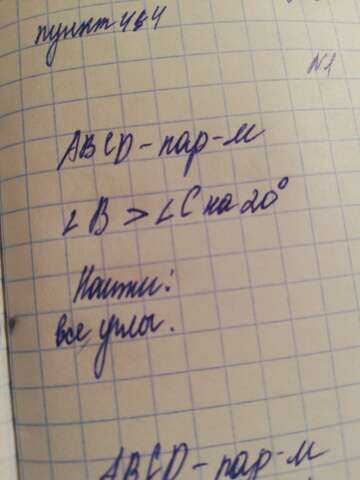 пункт 4
N1
ABCD - пар-м
∠B > ∠C на 20°
Найти:
все углы.
ABCD - пар-м